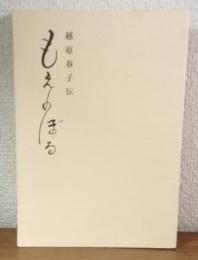 越原春子伝
もえのぼる